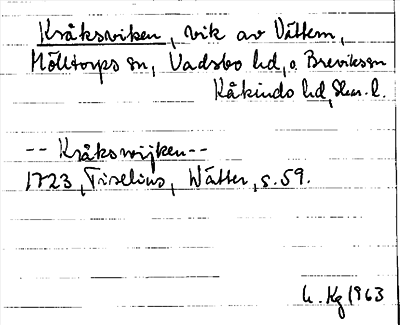 Kråksviken, vik av Vättern,
Mölltorps sn, Vadsbo hd, o. Breviks sn
Kåkinds hd, Skar. l.
-- Kråkswijken --
1723, Tiselius, Wätter, s. 59.
1963